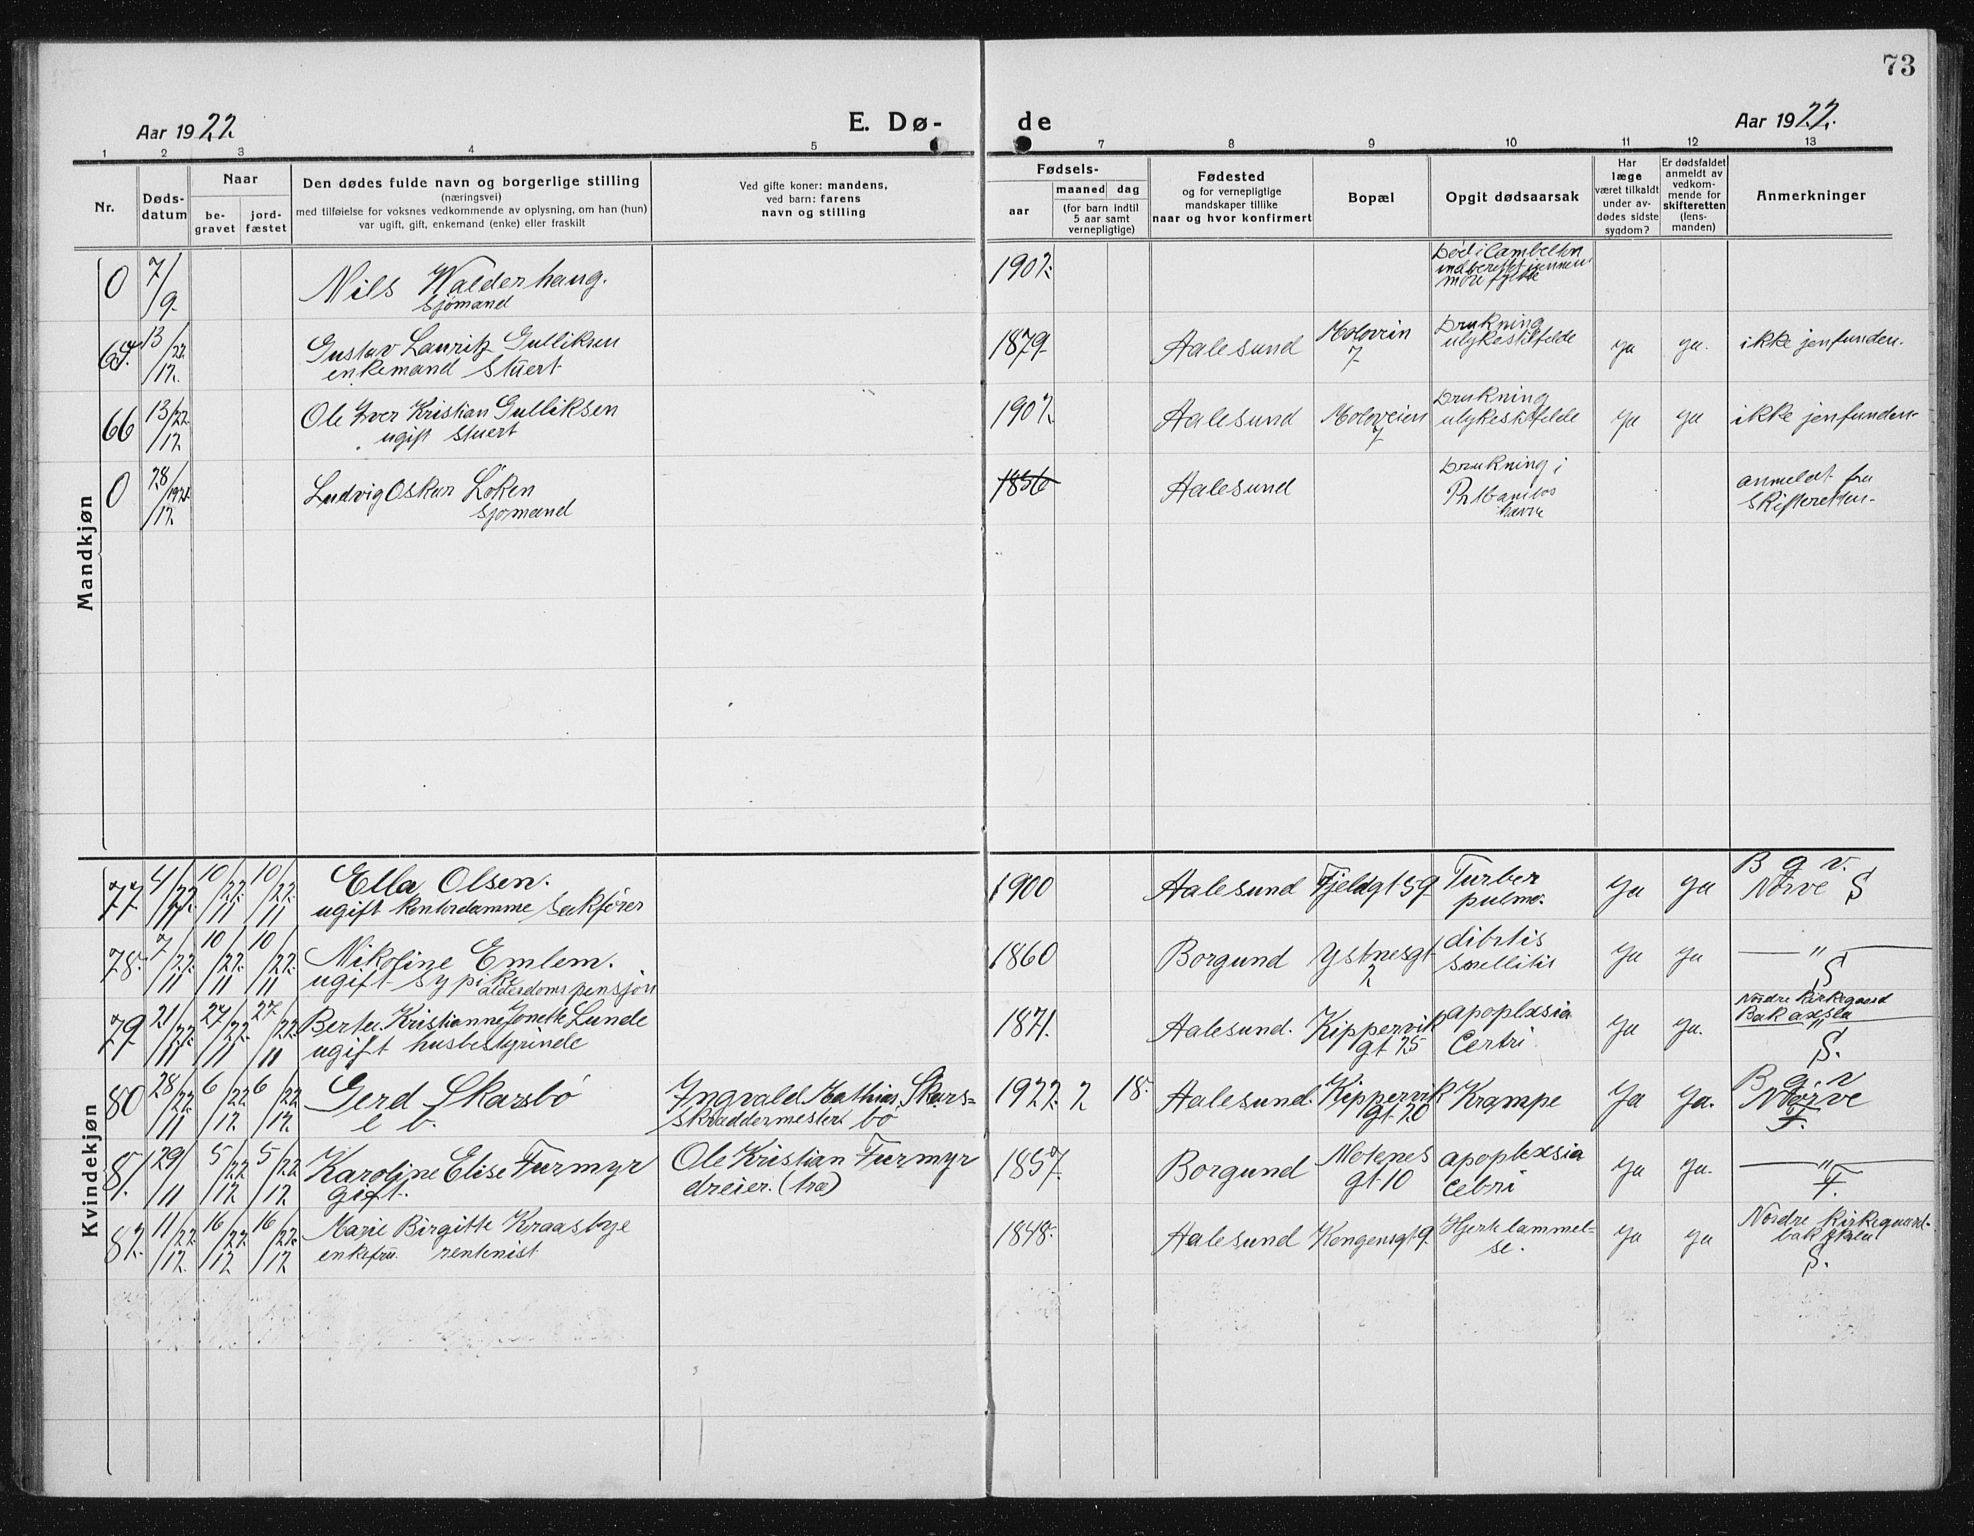 73
Aar 1922
E. Dø-
de
Aar 1922.
1 2 3 4 5
7 8 9 10 11 12 13
Nr.
Døds-
datum
Naar
be-
gravet
jord-
fæstet
Den dødes fulde navn og borgerlige stilling
(næringsvei)
med tilføielse for voksnes vedkommende av oplysning, om han (hun)
var ugift, gift, enkemand (enke) eller fraskilt
Ved gifte koner: mandens,
ved barn: farens
navn og stilling
Fødsels-
aar
maaned dag
(for barn indtil
5 aar samt
vernepligtige)
Fødested
og for vernepligtige
mandskaper tillike
naar og hvor konfirmert
Bopæl
Opgit dødsaarsak
Har
læge
været tilkaldt
under av-
dødes sidste
sygdom?
Er dødsfaldet
anmeldt av
vedkom-
mende for
skifteretten
(lens-
manden)
Anmerkninger
Mandkjøn
0 7/9 Nils Walderhaug. 1902. Død i Cambelton
sjømand
13/12 22 Gustav Lauritz Gulliksen 1879 Aalesund Moloveien 7 Drukning ulykestilfelde ja ja. ikke jenfunden.
enkemand Stuert
66 13/12 22 Ole Iver Kristian Gulliksen 1902 Aalesund Moloveien 7 Drukning ulykestilfelde ja ja ikke jenfunden
ugift stuert
0 28/12 Ludvig Oskar Løken 1856 Aalesund Drukning i anmeldt fra
Sjømand havn Skifteretten.
Kvindekjøn
77 4/11 22. 10/11 22. 10/11 22. Ella Olsen. 1900 Aalesund Fjeldgt 59 Tuber pulmo. ja ja B g v. Nørve S
ugift kontordamme Sakfører
78. 7/11 22. 10/11 22. 10/11 22. Nikoline Emlem. 1860 Borgund Ystnesgt 2 ja ja — " — S
ugift sypike alderdoms pensjon
79 21/11 22. 27/11 22. 27/11 22. Berte Kristianne Jonette Lunde 1871. Aalesund. Kippervik gt 25 apoplexia Certri ja ja. Nordre Kirkegaard Bak axsla " S.
ugift husbestyrinde
80 28/11 22. 6/12 22. 6/12 22. Gerd Skarsbø Ingvald Mathias Skars- 1922. 2 18. Aalesund. Kippervik gt 20 Krampe Ja Ja. B g. v Nørve F.
e b. Skræddermester bø
81. 29/11 5/12 22. 5/12 22. Karoline Elise Furmyr Ole Kristian Furmyr 1857. Borgund Notenes gt 10 apoplexia Cebri ja ja. — " — F.
gift. dreier. (træ)
82. 11/12 22. 16/12 22. 16/12 22. Marie Birgitte Kraasbye 1848. Aalesund Kongensgt 9. Hjertelammel- se. ja ja Nordre Kirkegaard S.
enkefru. rentenist